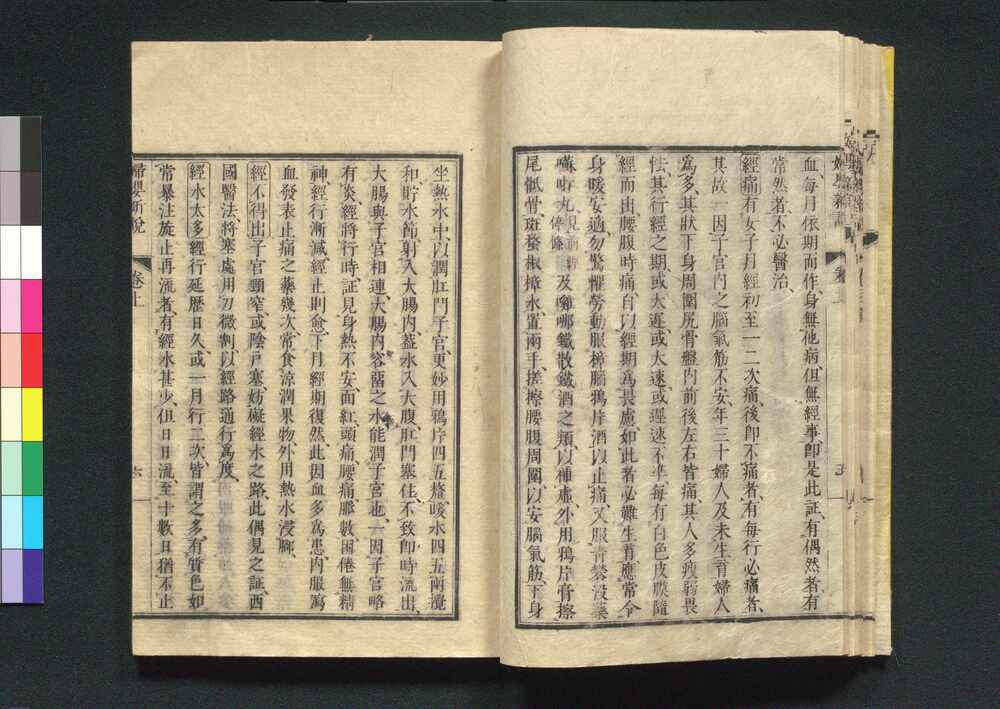 血、每月依期而作、身無他病、但無經事、卽是此証、有偶然者、有
常然者、不必醫治、
經痛有女子月經初至一二次痛、後卽不痛者、有每行必痛者、
其故一因子官內之腦氣筋不安、年三十婦人及未生育婦人
爲多、其狀下身周圍尻骨盤內前後左右皆痛、其人多瘦弱畏
怯、其行經之期、或大遲或大速、或遲速不準、每有白色皮膜隨
經而出、腰腹時痛、自以經期爲畏慮、如此者必難生育、應常令
身暖安適、勿驚懼勞動、服樟腦鴉片酒以止痛、又服青礬沒藥
丸及𠸄哪鐵散鐵酒之類、以補虛、外用鴉片膏擦
尾骶骨、斑蝥椒樟水、置兩手、搓擦腰腹周圍、以安腦氣筋、下身
坐熱水中、以潤肛門子官、更妙用鴉片四五釐、暖水四五兩攪
和、貯水節射入大腸內、蓋水入大腹、肛門塞住、不致卽時流出、
大腸與子宮相連、大腸內容畱之水、能潤子宮也、一因子宮略
有炎、經將行時、証見身熱不安、面紅頭痛腰痛、脈數困倦無精
神、經行漸減、經止則愈、下月經期復然、此因血多爲患、內服瀉
血發表止痛之藥幾次、常食涼潤果物、外用熱水浸腳、
經不得出子宮頸窄、或陰戸塞、妨礙經水之路、此偶見之証、西
國醫法、將塞處用刀微割、以經路通行爲度、
經水太多經行延歷日久、或一月行二三次、皆謂之多、有實色如
常、暴注旋止再流者、有經水甚少、但日日流、至十數日猶不止
婦嬰新說
卷上
六